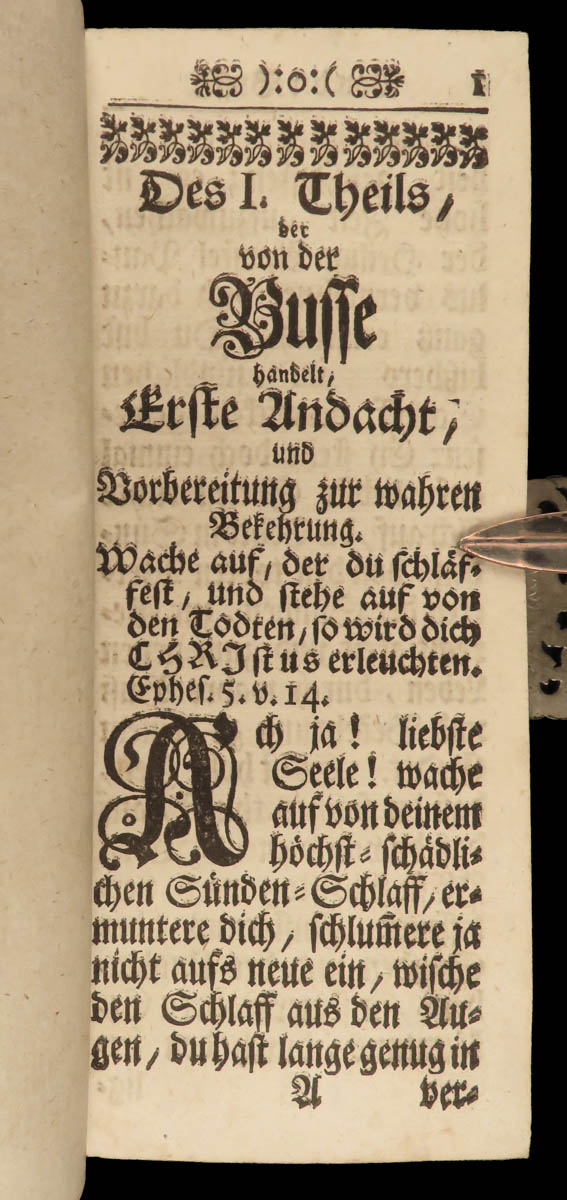 ):o:( 1
Des I. Theils,
der
von der
Busse
handelt,
Erste Andacht,
und
Vorbereitung zur wahren
Bekehrung.
Wache auf, der du schläf-
fest, und stehe auf von
den Todten, so wird dich
CHRIstus erleuchten.
Ephes. 5. v. 14.
Ach ja! liebste
Seele! wache
auf von deinem
höchst-schädli-
chen Sünden-Schlaff, er-
muntere dich, schlum̄ere ja
nicht aufs neue ein, wische
den Schlaff aus den Au-
gen, du hast lange genug in
A ver-